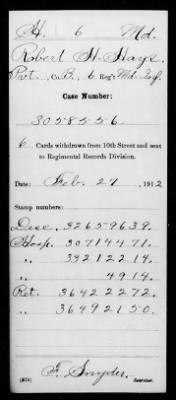 H. 6 Md.
Robert H. Hays.
Pvt., Co. B, 6 Reg't Md. Inf.
Case Number:
3058556
6 Cards withdrawn from 10th Street and sent
to Regimental Records Division.
Date: Feb. 27, 1912
Stamp numbers:
Desc. 32659639.
Hosp. 30714471.
" 33212214.
" 4914.
Ret. 36422272.
" 36492150.
F. Snyder.
Searcher.